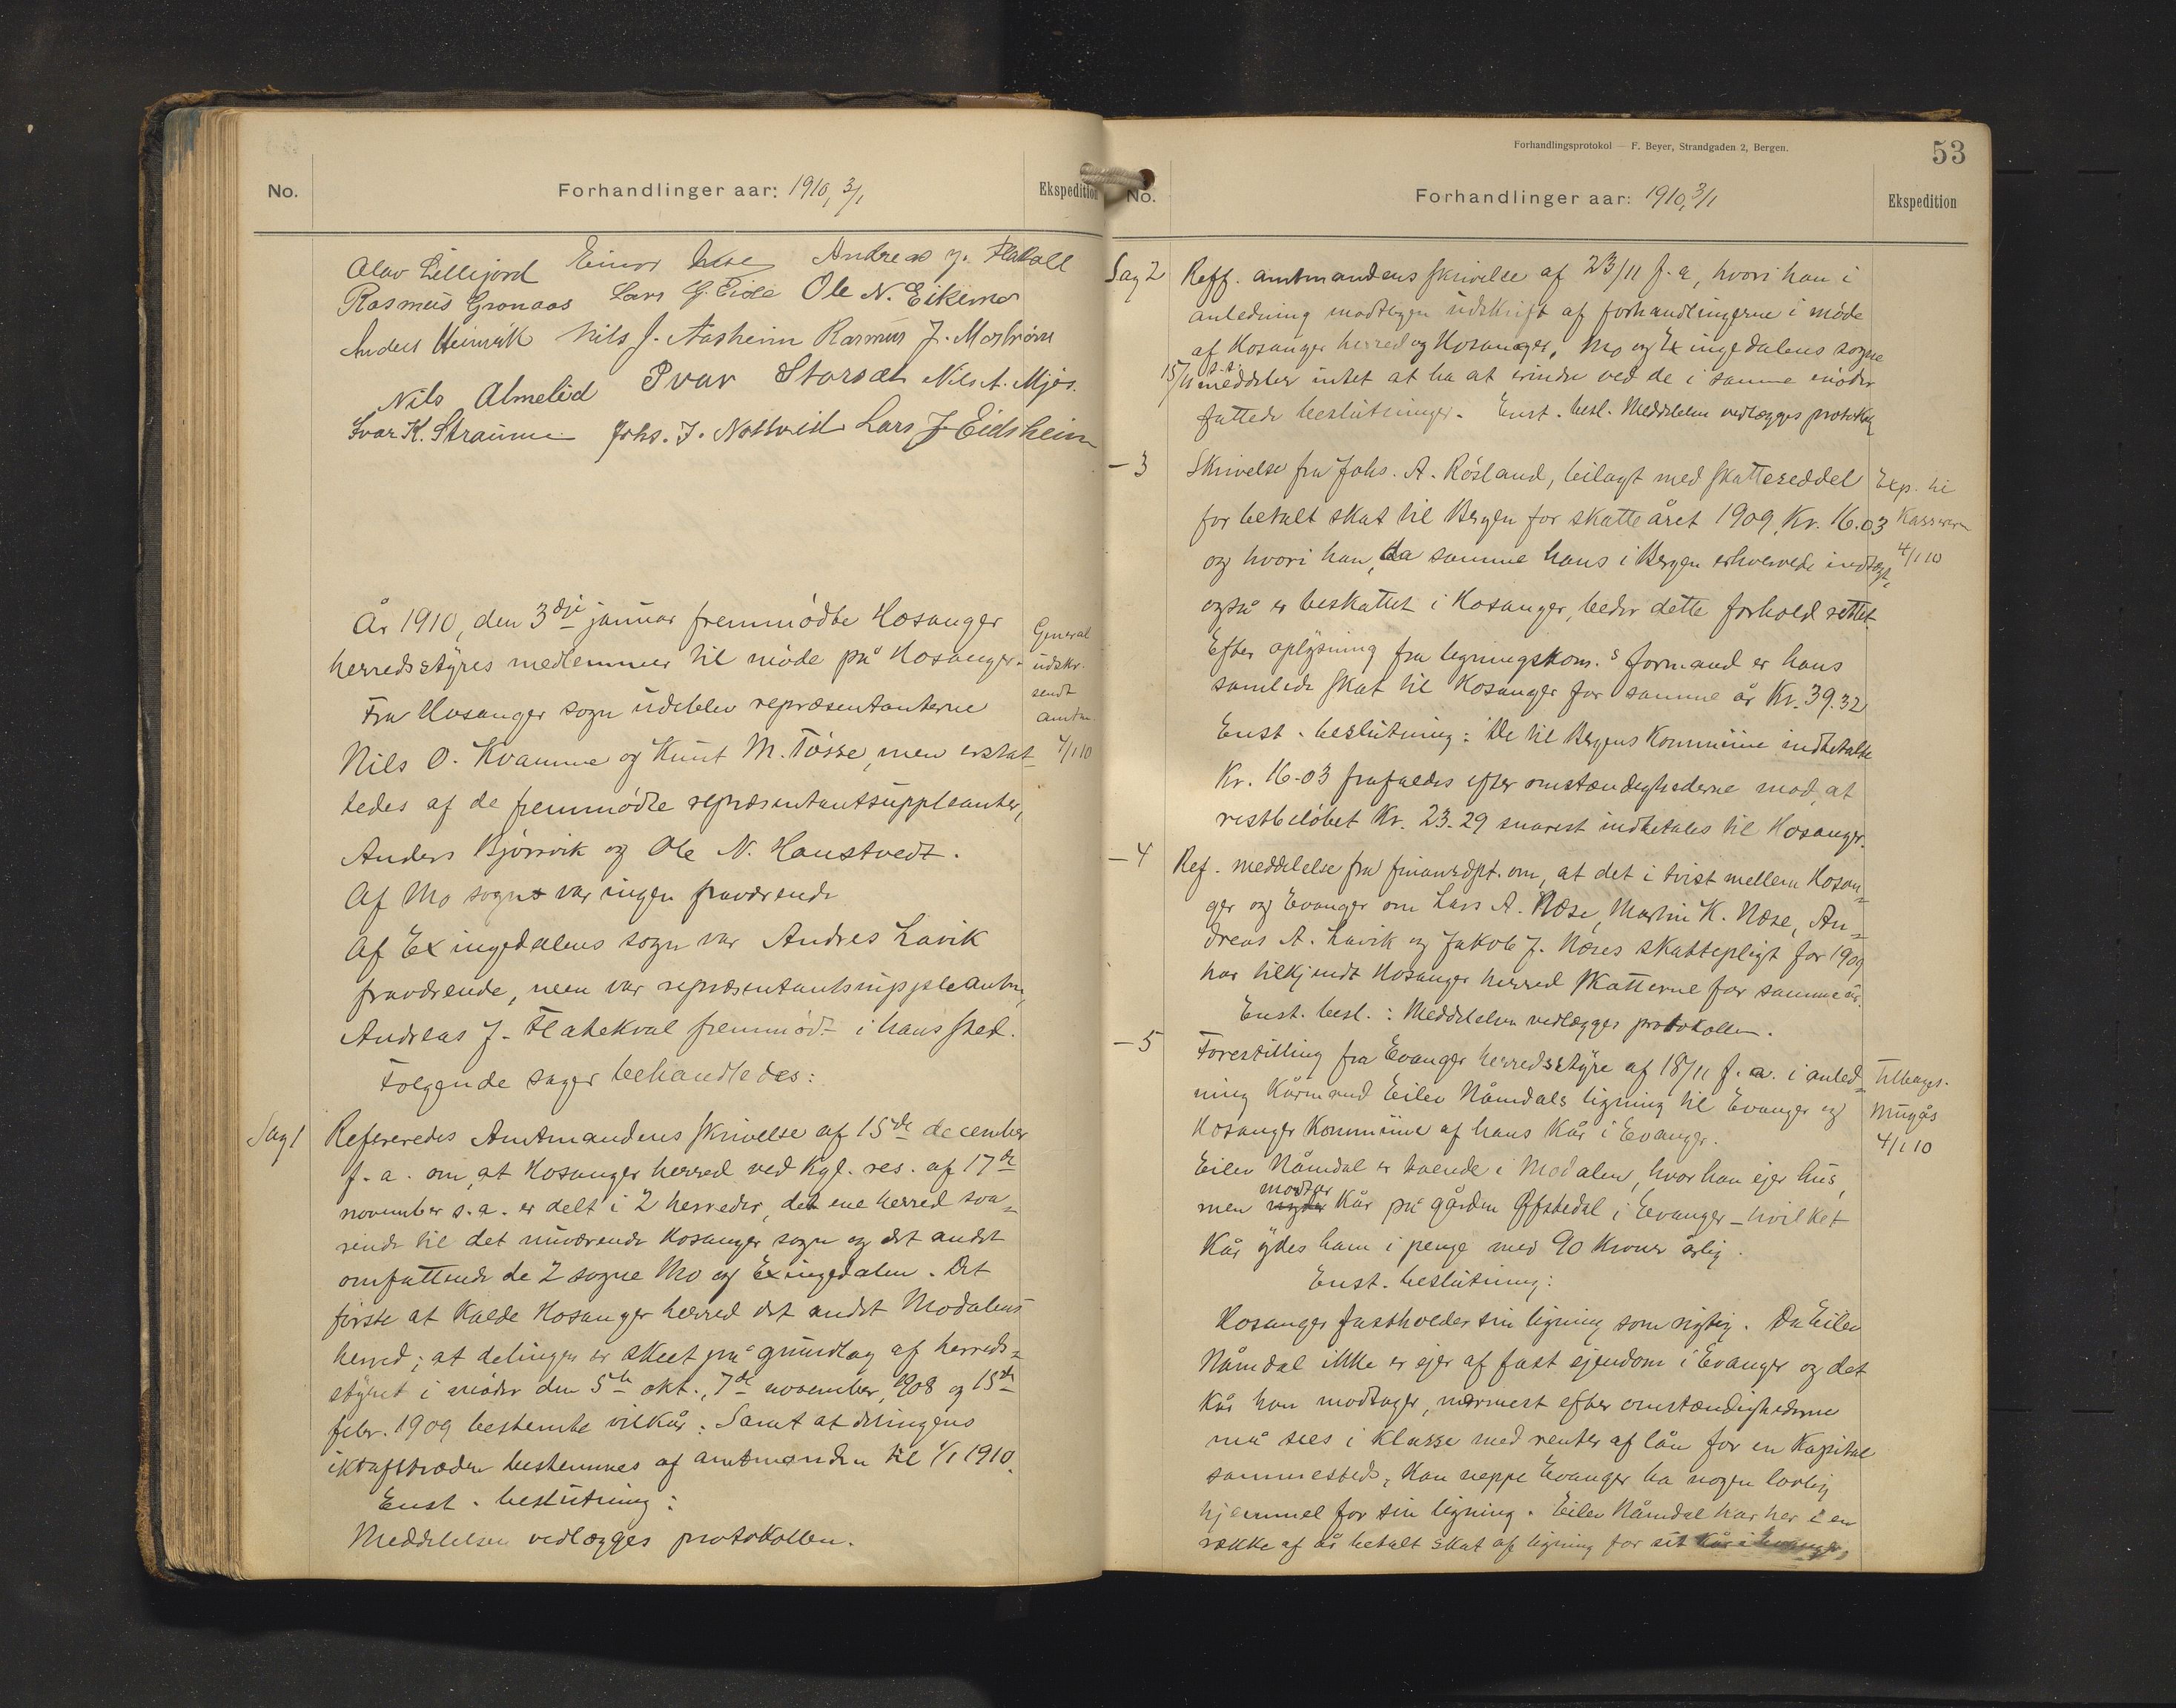 No.
Forhandlinger aar: 1910, 3/1
Ekspedition
Olav Lillejord Einar Andreas J. Flatkall
Rasmus Gronaas Lars G. Eide Ole N. Eikemo
Anders Heimvik Nils J. Aasheim Rasmus J. Mostrøm
Nils Almelid Ivar Storset Nils A. Mjøs.
Ivar K. Straume Johs. J. Nottveit Lars J. Eidsheim
År 1910, den 3dje januar fremmødte Hosanger
herredsstyres medlemmer til møde på Hosanger.
Fra Hosanger sogn udeblev repræsentanterne
Nils O. Kvamme og Knut M. Tøsse, men erstat-
tedes af de fremmødte repræsentantsuppleanter,
Anders Bjørsvik og Ole N. Haustvedt.
Af Mo sogn var ingen fraværende
Af Exingedalens sogn var Andres Lavik
fraværende, men var repræsentantsuppleanten,
Andreas J. Flatekval fremmødt i hans sted.
Følgende sager behandledes:
General
udskr.
sendt
amtm.
4/1 10
Sag 1
Refereredes Amtmandens skrivelse af 15de december
f. a. om, at Hosanger herred ved Kgl. res. af 17de
november s. a. er delt i 2 herreder, det ene herred sva-
rende til det nuværende Hosanger sogn og det andet
omfattende de 2 sogne Mo og Exingedalen. Det
første at kalde Hosanger herred det andet Modalens
herred; at delingen er skeet på grundlag af herreds-
styret i møder den 5te okt., 7de november 1908 og 15de
febr. 1909 bestemte vilkår; Samt at delingens
ikrafttræden bestemmes af amtmanden til 1/1 1910.
Enst. beslutning:
Meddelelsen vedlægges protokollen.
Forhandlingsprotokol — F. Beyer, Strandgaden 2, Bergen.
53
No.
Forhandlinger aar: 1910, 3/1
Ekspedition
Sag 2
Reff. amtmandens skrivelse af 23/11 f. a, hvori han i
anledning modtagen udskrift af forhandlingerne i møde
af Hosanger herred og Hosanger, Mo og Exingedalens sogne
15/11 s. a. meddeler intet at ha at erindre ved de i samme møder
fattede beslutninger. Enst. besl. Meddelelsen vedlægges protokol
- 3
Skrivelse fra Johs. A. Røsland, bilagt med skatteseddel
for betalt skat til Bergen for skatteåret 1909, Kr. 16.03
og hvori han, da samme hans i Bergen erhvervede indtægt,
også er beskattet i Hosanger, beder dette forhold rettet.
Efter oplysning fra ligningskom.s formand er hans
samlede skat til Hosanger for samme år Kr. 39.32
Enst. beslutning: De til Bergens Kommune indbetalte
Kr. 16-03 frafaldes efter omstændighederne mod, at
restbeløbet Kr. 23.29 snarest indbetales til Hosanger.
Exp. til
Kasseren
4/1 10
- 4
Ref. meddelelse fra finansdpt. om, at det i tvist mellem Hosan-
ger og Evanger om Lars A. Næse, Martin K. Næse, An-
dreas A. Lavik og Jakob J. Næses skattepligt for 1909
har tilkjendt Hosanger herred skatterne for samme år.
Enst. besl.: Meddelelsen vedlægges protokollen.
- 5
Forestilling fra Evanger herredsstyre af 18/11 f. a. i anled-
ning Kårmand Eilev Nåmdals ligning til Evanger og
Hosanger Kommune af hans Kår i Evanger.
Eilev Nåmdal er boende i Modalen, hvor han ejer hus,
men nyder modtar Kår på gården Offstedal i Evanger - hvilket
Kår ydes ham i penge med 90 Kroner årlig.
Enst. beslutning:
Hosanger fastholder sin ligning som rigtig. Da Eilev
Nåmdal ikke er ejer af fast ejendom i Evanger og det
Kår han modtager, nærmest efter omstændighederne
må sees i klasse med renter af lån for en Kapital
sammesteds, kan neppe Evanger ha nogen lovlig
hjemmel for sin ligning. Eilev Nåmdal har her i en
række af år betalt skat af ligning for sit Kår i Evanger,
Tilbages.
Mugås
4/1 10